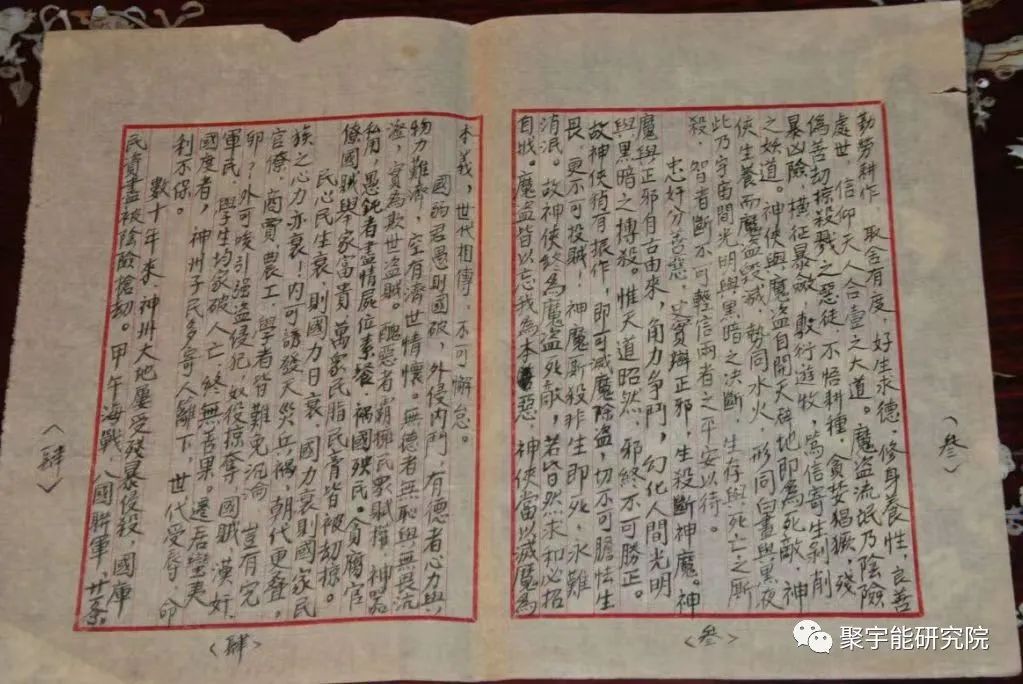 <叁>
勤勞耕作，取舍有度，好生求德，修身養性，良善
處世，信仰天人合壹之大道。魔盜流氓乃陰險
偽善劫掠殺戮之惡徒，不悟耕種，貪婪猖獗，殘
暴凶險，橫征暴斂，數行遊牧，篤信寄生剝削
之妖道。神俠與魔盜自開天辟地即為死敵，神
俠生養而魔盜毀滅，勢同水火，形同白晝與黑夜
此乃宇宙間光明與黑暗之決斷，生存與死亡之斷
殺，智者斷不可輕信兩者之平安以待。
忠奸分善惡，史實辨正邪，生殺斷神魔。神
魔與正邪自古由來，角力爭鬥，幻化人間光明
與黑暗之搏殺。惟天道昭然，邪終不可勝正。
故神俠稍有振作，即可滅魔除盜，切不可膽怯生
畏，更不可投賊，神魔廝殺非生即死，永難
消泯。故神俠終為魔盜死敵，若昏然未知必招
自戕。魔盜皆以忘我為本惡，神俠當以滅魔為
<叁>
<肆>
本義，世代相傳，不可懈怠。
國弱君愚則國破，外侵內鬥，有德者心力與
物力難濟，空有濟世情懷。無德者無恥與無畏流
淫，實為欺世盜賊。醜惡者霸柳民眾賦權，神器
私用，愚鈍者盡情屍位素餐，禍國殃民。貪腐官
僚國賊舉家富貴，萬家民脂民膏皆被劫掠。
民心民生衰，則國力日衰，國力衰則國家民
族之心力亦衰！內可誘發天災兵禍，朝代更疊。
官僚，商賈農工，學者皆難免沉淪，豈有完
卵？外可唆引强盜侵犯，奴役掠奪，國賊，漢奸，
軍民，學生均家破人亡，終無善果。遷居蠻夷
國度者，神州子民多寄人籬下，世代受辱，命
利不保。
數十年來，神州大地屢受殘暴侵殺，國庫
民資盡被陰險搶劫。甲午海戰，八國聯軍，廿条
<肆>
聚宇能研究院